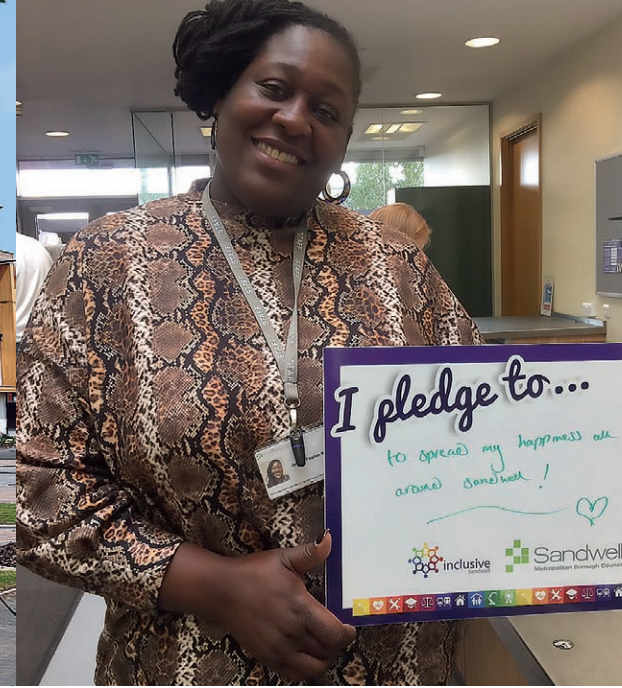 STAFF STAFF
I pledge to...
to spread my happiness all
around sandwell!
inclusive
Sandwell
Sandwell
Metropolitan Borough Council